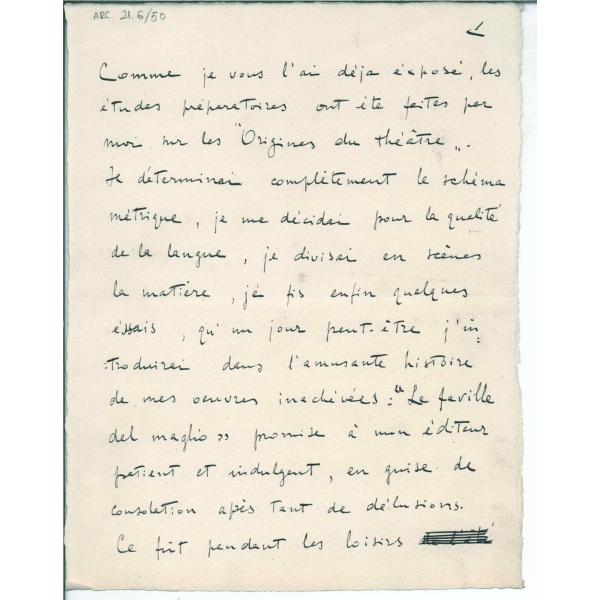 ARC. 21.6/50
1
Comme je vous l'ai déja éxposé, les
études préparatoires ont été faites par
moi sur les "Origines du théâtre„.
Je déterminai complètement le schéma
métrique, je me décidai pour la qualité
de la langue, je divisai en scènes
la matière, je fis enfin quelques
éssais, qu'un jour peut-être j'in=
:troduirai dans l'amusante histoire
de mes oeuvres inachévées: "Le faville
del maglio» promise à mon éditeur
patient et indulgent, en guise de
consolation après tant de délusions.
Ce fût pendant les loisirs